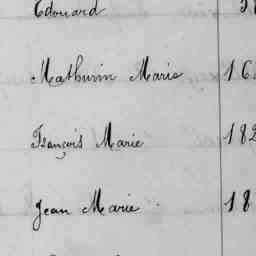 Edouard
Mathurin Marie 16
François Marie 182
Jean Marie 18